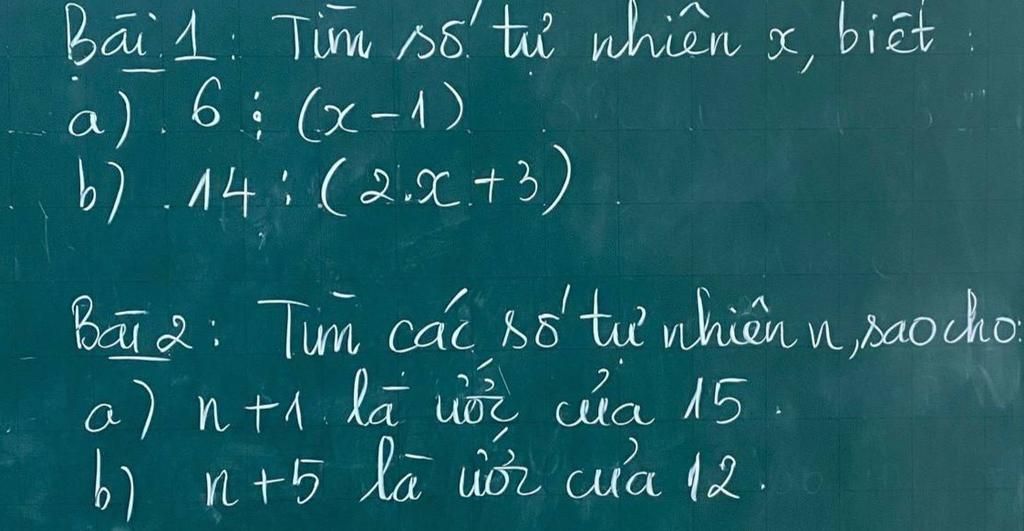 Bài 1: Tìm số tự nhiên x, biết:
a) 6 ⋮ (x-1)
b) 14 ⋮ (2.x+3)
Bài 2: Tìm các số tự nhiên n, sao cho:
a) n+1 là ước của 15.
b) n+5 là ước của 12.